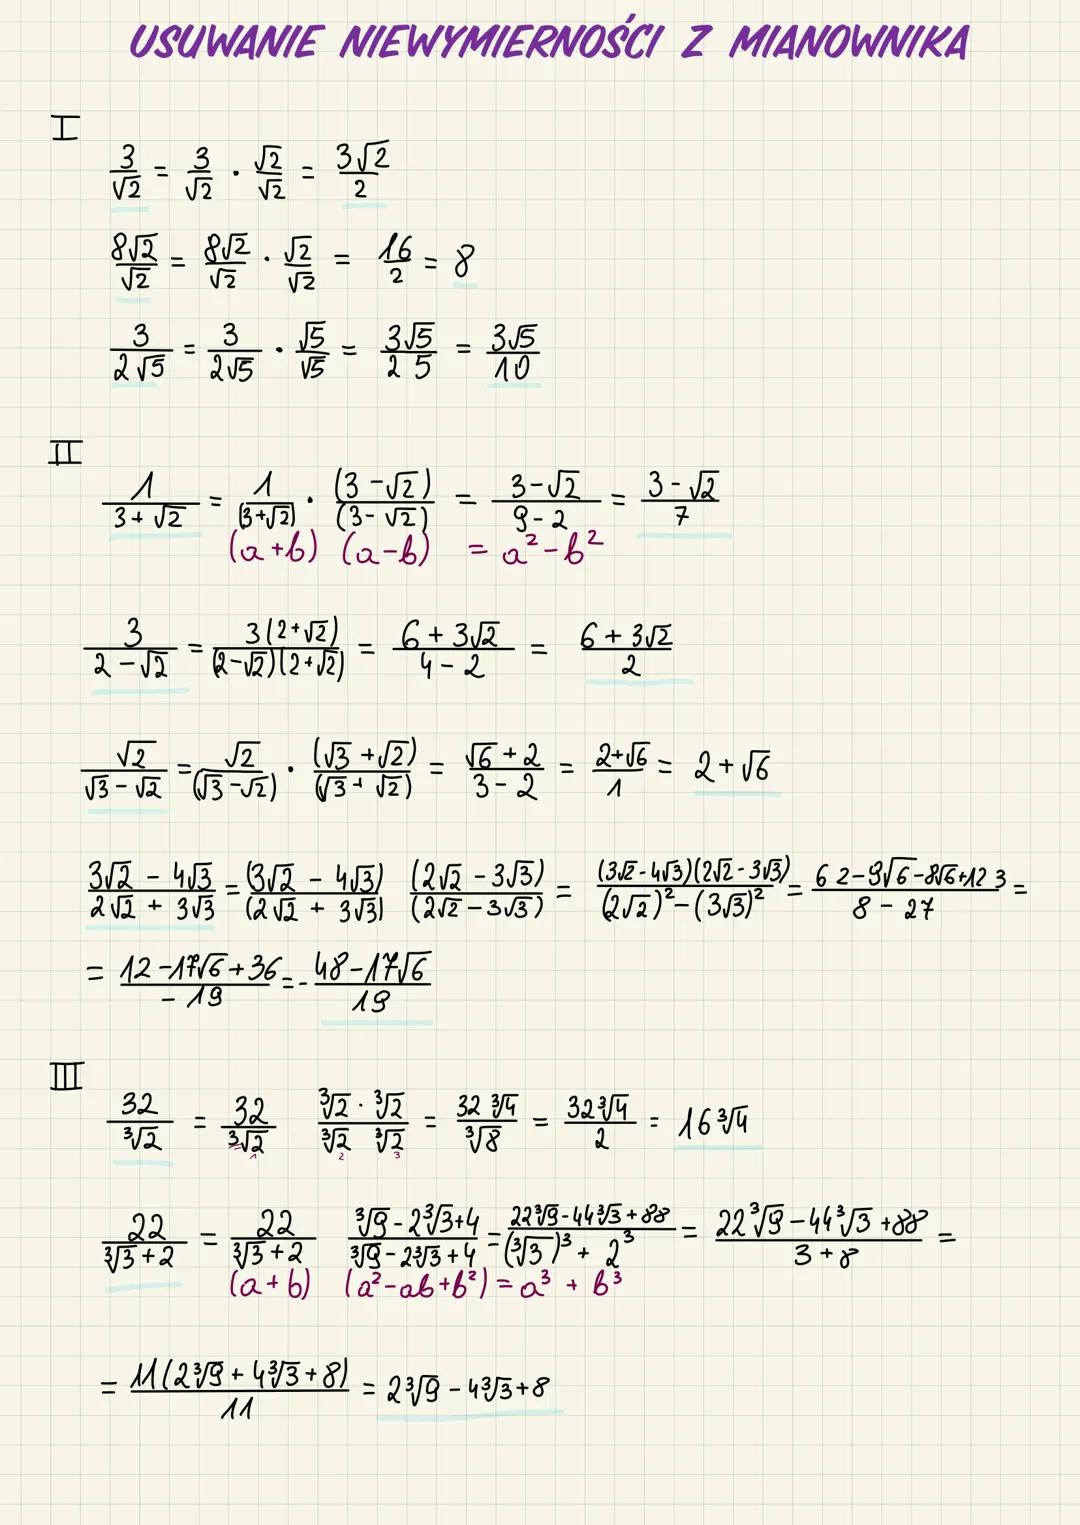 USUWANIE NIEWYMIERNOŚCI Z MIANOWNIKA
I
3/√2 = 3/√2 · √2/√2 = 3√2/2
8√2/√2 = 8√2/√2 · √2/√2 = 16/2 = 8
3/2√5 = 3/2√5 · √5/√5 = 3√5/2 5 = 3√5/10
II
1/3+√2 = 1/(3+√2) · (3-√2)/(3-√2) = 3-√2/9-2 = 3-√2/7
(a+b) (a-b) = a²-b²
3/2-√2 = 3(2+√2)/(2-√2)(2+√2) = 6+3√2/4-2 = 6+3√2/2
√2/√3-√2 = √2/(√3-√2) · (√3+√2)/(√3+√2) = √6+2/3-2 = 2+√6/1 = 2+√6
3√2-4√3/2√2+3√3 = (3√2-4√3)/(2√2+3√3) (2√2-3√3)/(2√2-3√3) = (3√2-4√3)(2√2-3√3)/(2√2)²-(3√3)² = 6 2-9√6-8√6+12 3/8-27 =
= 12-17√6+36/-19 = - 48-17√6/19
III
32/∛2 = 32/∛2 ∛2·∛2/∛2 ∛2 = 32 ∛4/∛8 = 32∛4/2 = 16∛4
1 2 3
22/∛3+2 = 22/∛3+2 ∛9-2∛3+4/∛9-2∛3+4 = 22∛9-44∛3+88/(∛3)³+2³ = 22∛9-44∛3+88/3+8 =
(a+b) (a²-ab+b²) = a³ + b³
= 11(2∛9+4∛3+8)/11 = 2∛9-4∛3+8